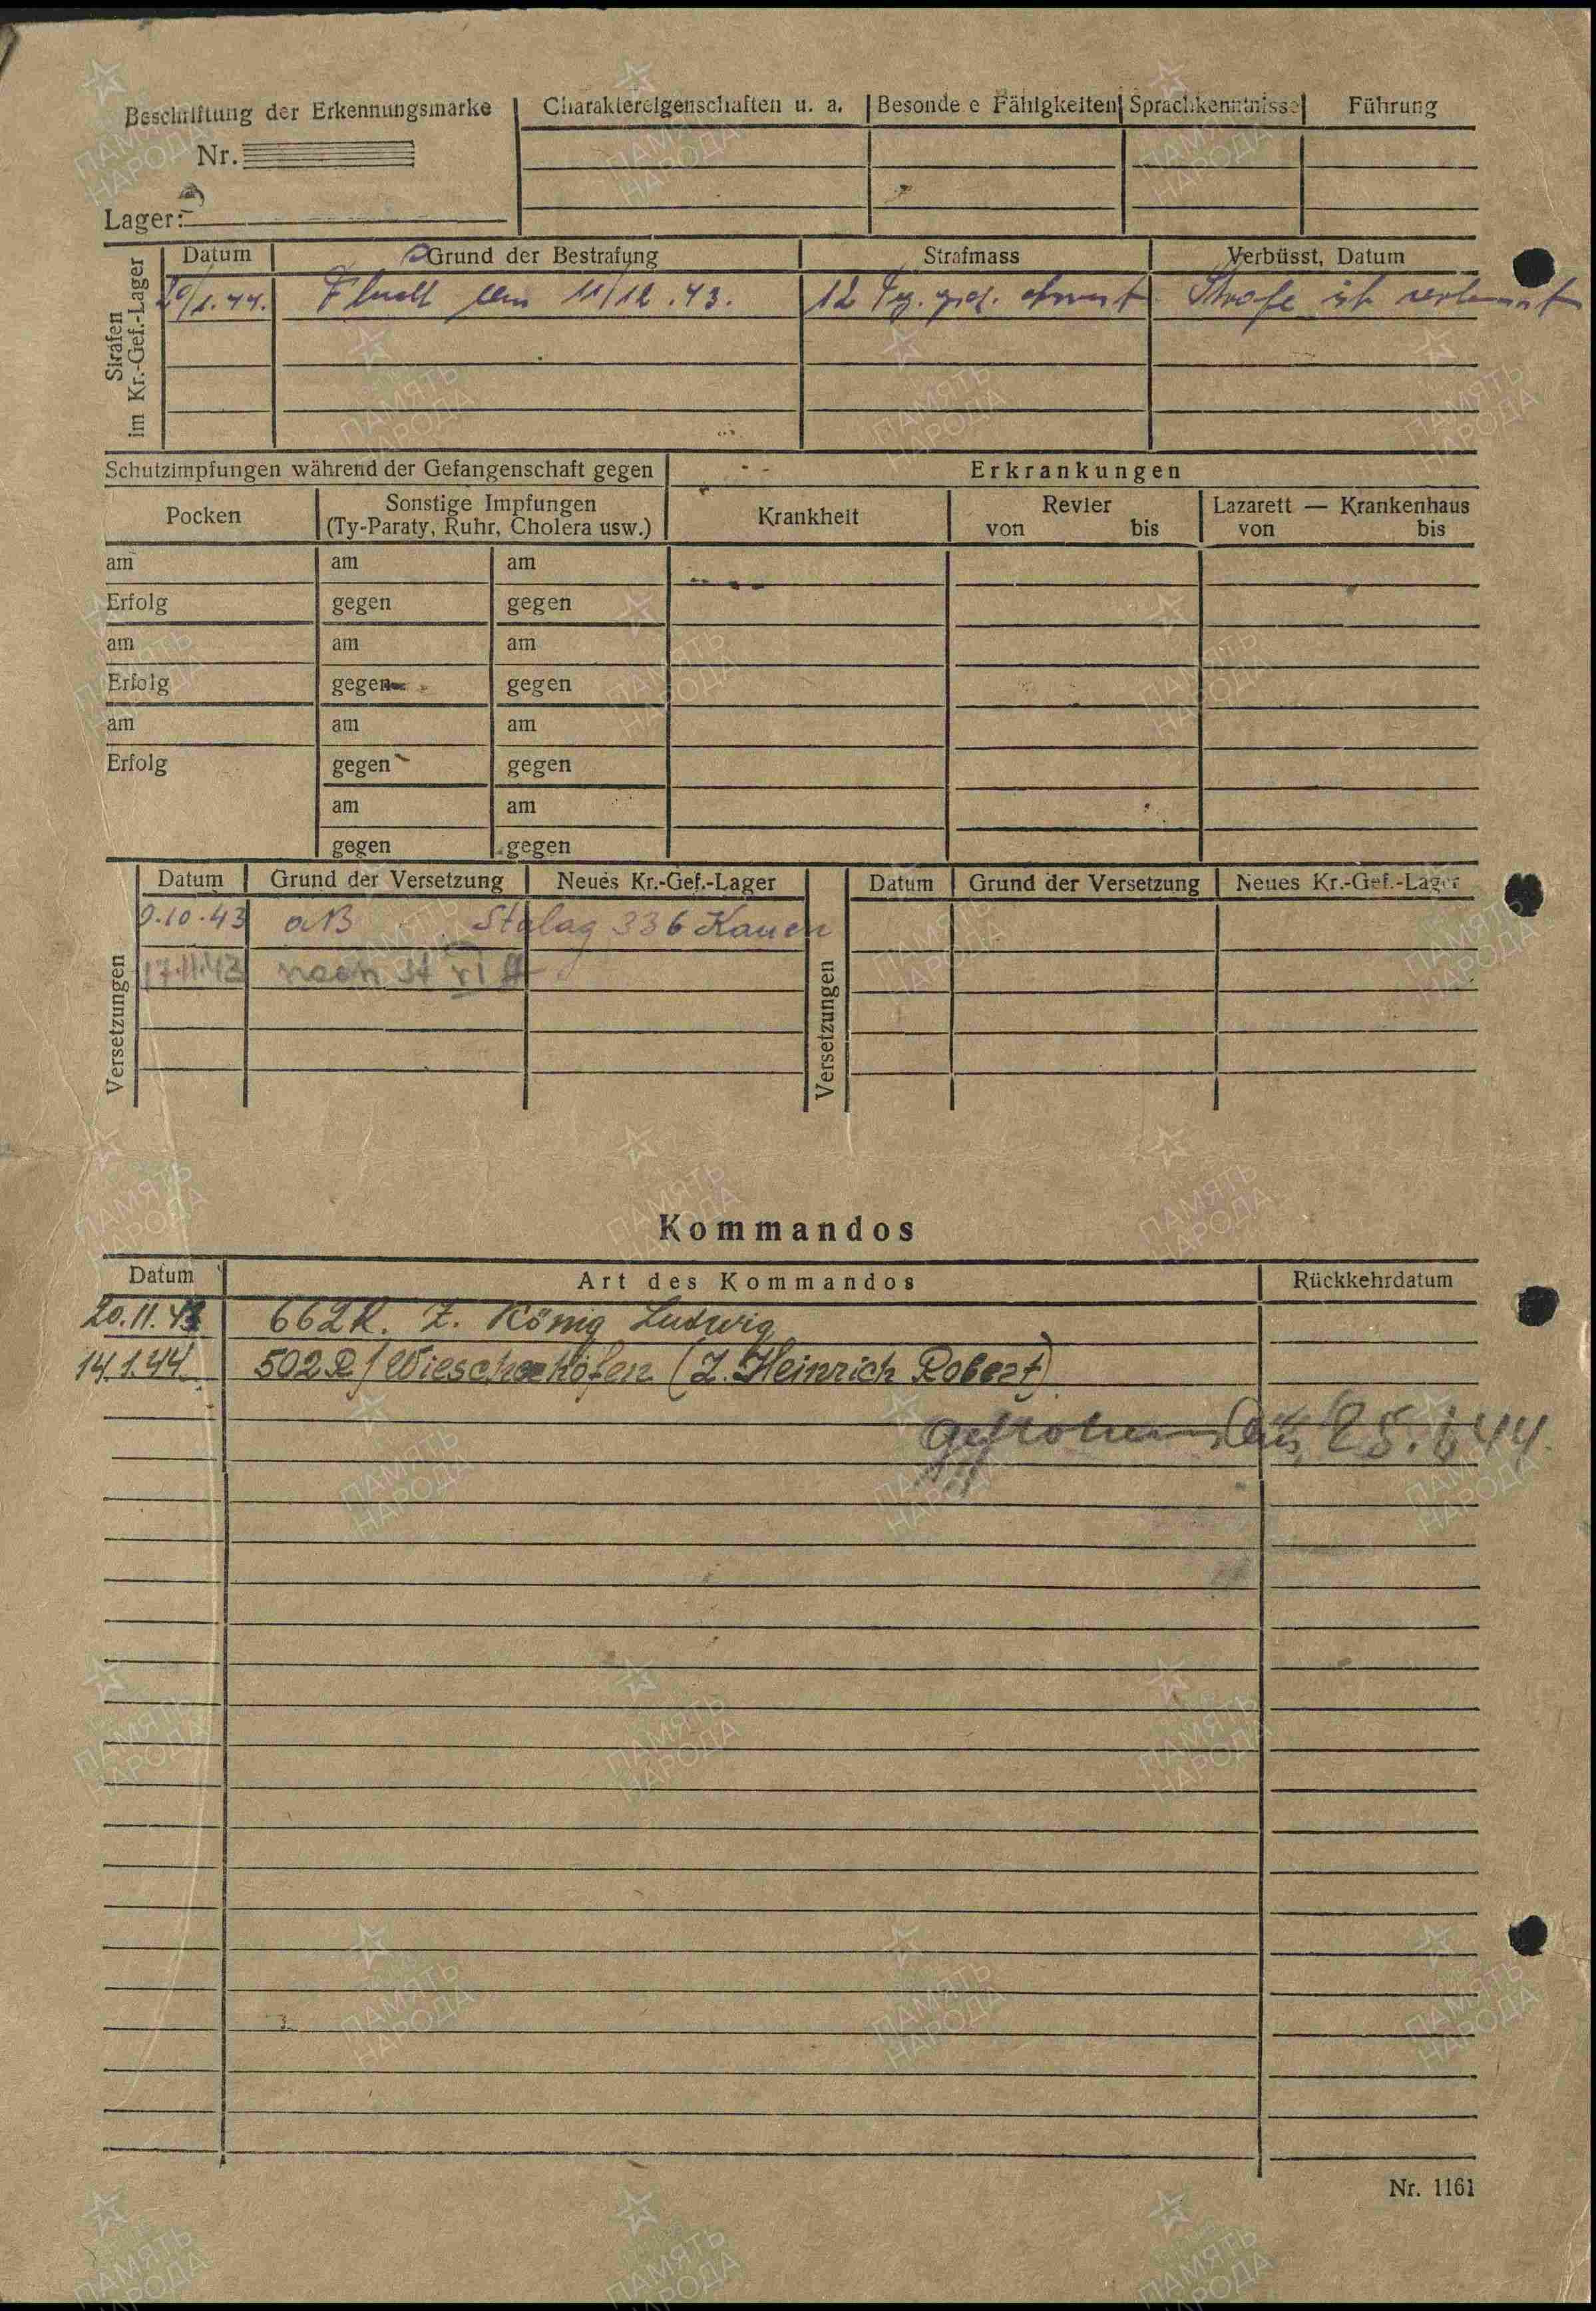 Beschriftung der Erkennungsmarke
Nr.
Lager:
Charaktereigenschaften u. a. Besonde e Fähigkeiten Sprachkenntnisse Führung
Strafen
im Kr.-Gef.-Lager
Datum Grund der Bestrafung Strafmass Verbüsst, Datum
20/1.44. Flucht am 11/12.43. 12 Tg. Strafe ist
Schutzimpfungen während der Gefangenschaft gegen Erkrankungen
Pocken Sonstige Impfungen Krankheit Revier Lazarett — Krankenhaus
(Ty-Paraty, Ruhr, Cholera usw.) von bis von bis
am am am
Erfolg gegen gegen
am am am
Erfolg gegen gegen
am am am
Erfolg gegen gegen
am am
gegen gegen
Versetzungen
Datum Grund der Versetzung Neues Kr.-Gef.-Lager
9.10.43 Stalag 336 Kauen
17.11.43 nach St VI A
Versetzungen
Datum Grund der Versetzung Neues Kr.-Gef.-Lager
Kommandos
Datum Art des Kommandos Rückkehrdatum
20.11.43 662R. Z. König Ludwig
14.1.44 502R/Wiescherhöfen (Z. Heinrich Robert)
geflohen 25.1.44
Nr. 1161
ПАМЯТЬ
НАРОДА